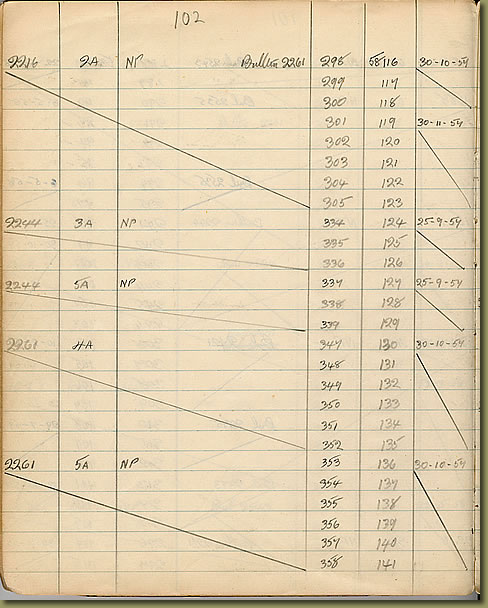 102
2216 2A NP Bullen 2261 298 58116 30-10-54
299 117
300 118
301 119 30-11-54
302 120
303 121
304 122
305 123
2244 3A NP 334 124 25-9-54
335 125
336 126
2244 5A NP 337 127 25-9-54
338 128
339 129
2261 4A 347 130 30-10-54
348 131
349 132
350 133
351 134
352 135
2261 5A NP 353 136 30-10-54
354 137
355 138
356 139
357 140
358 141